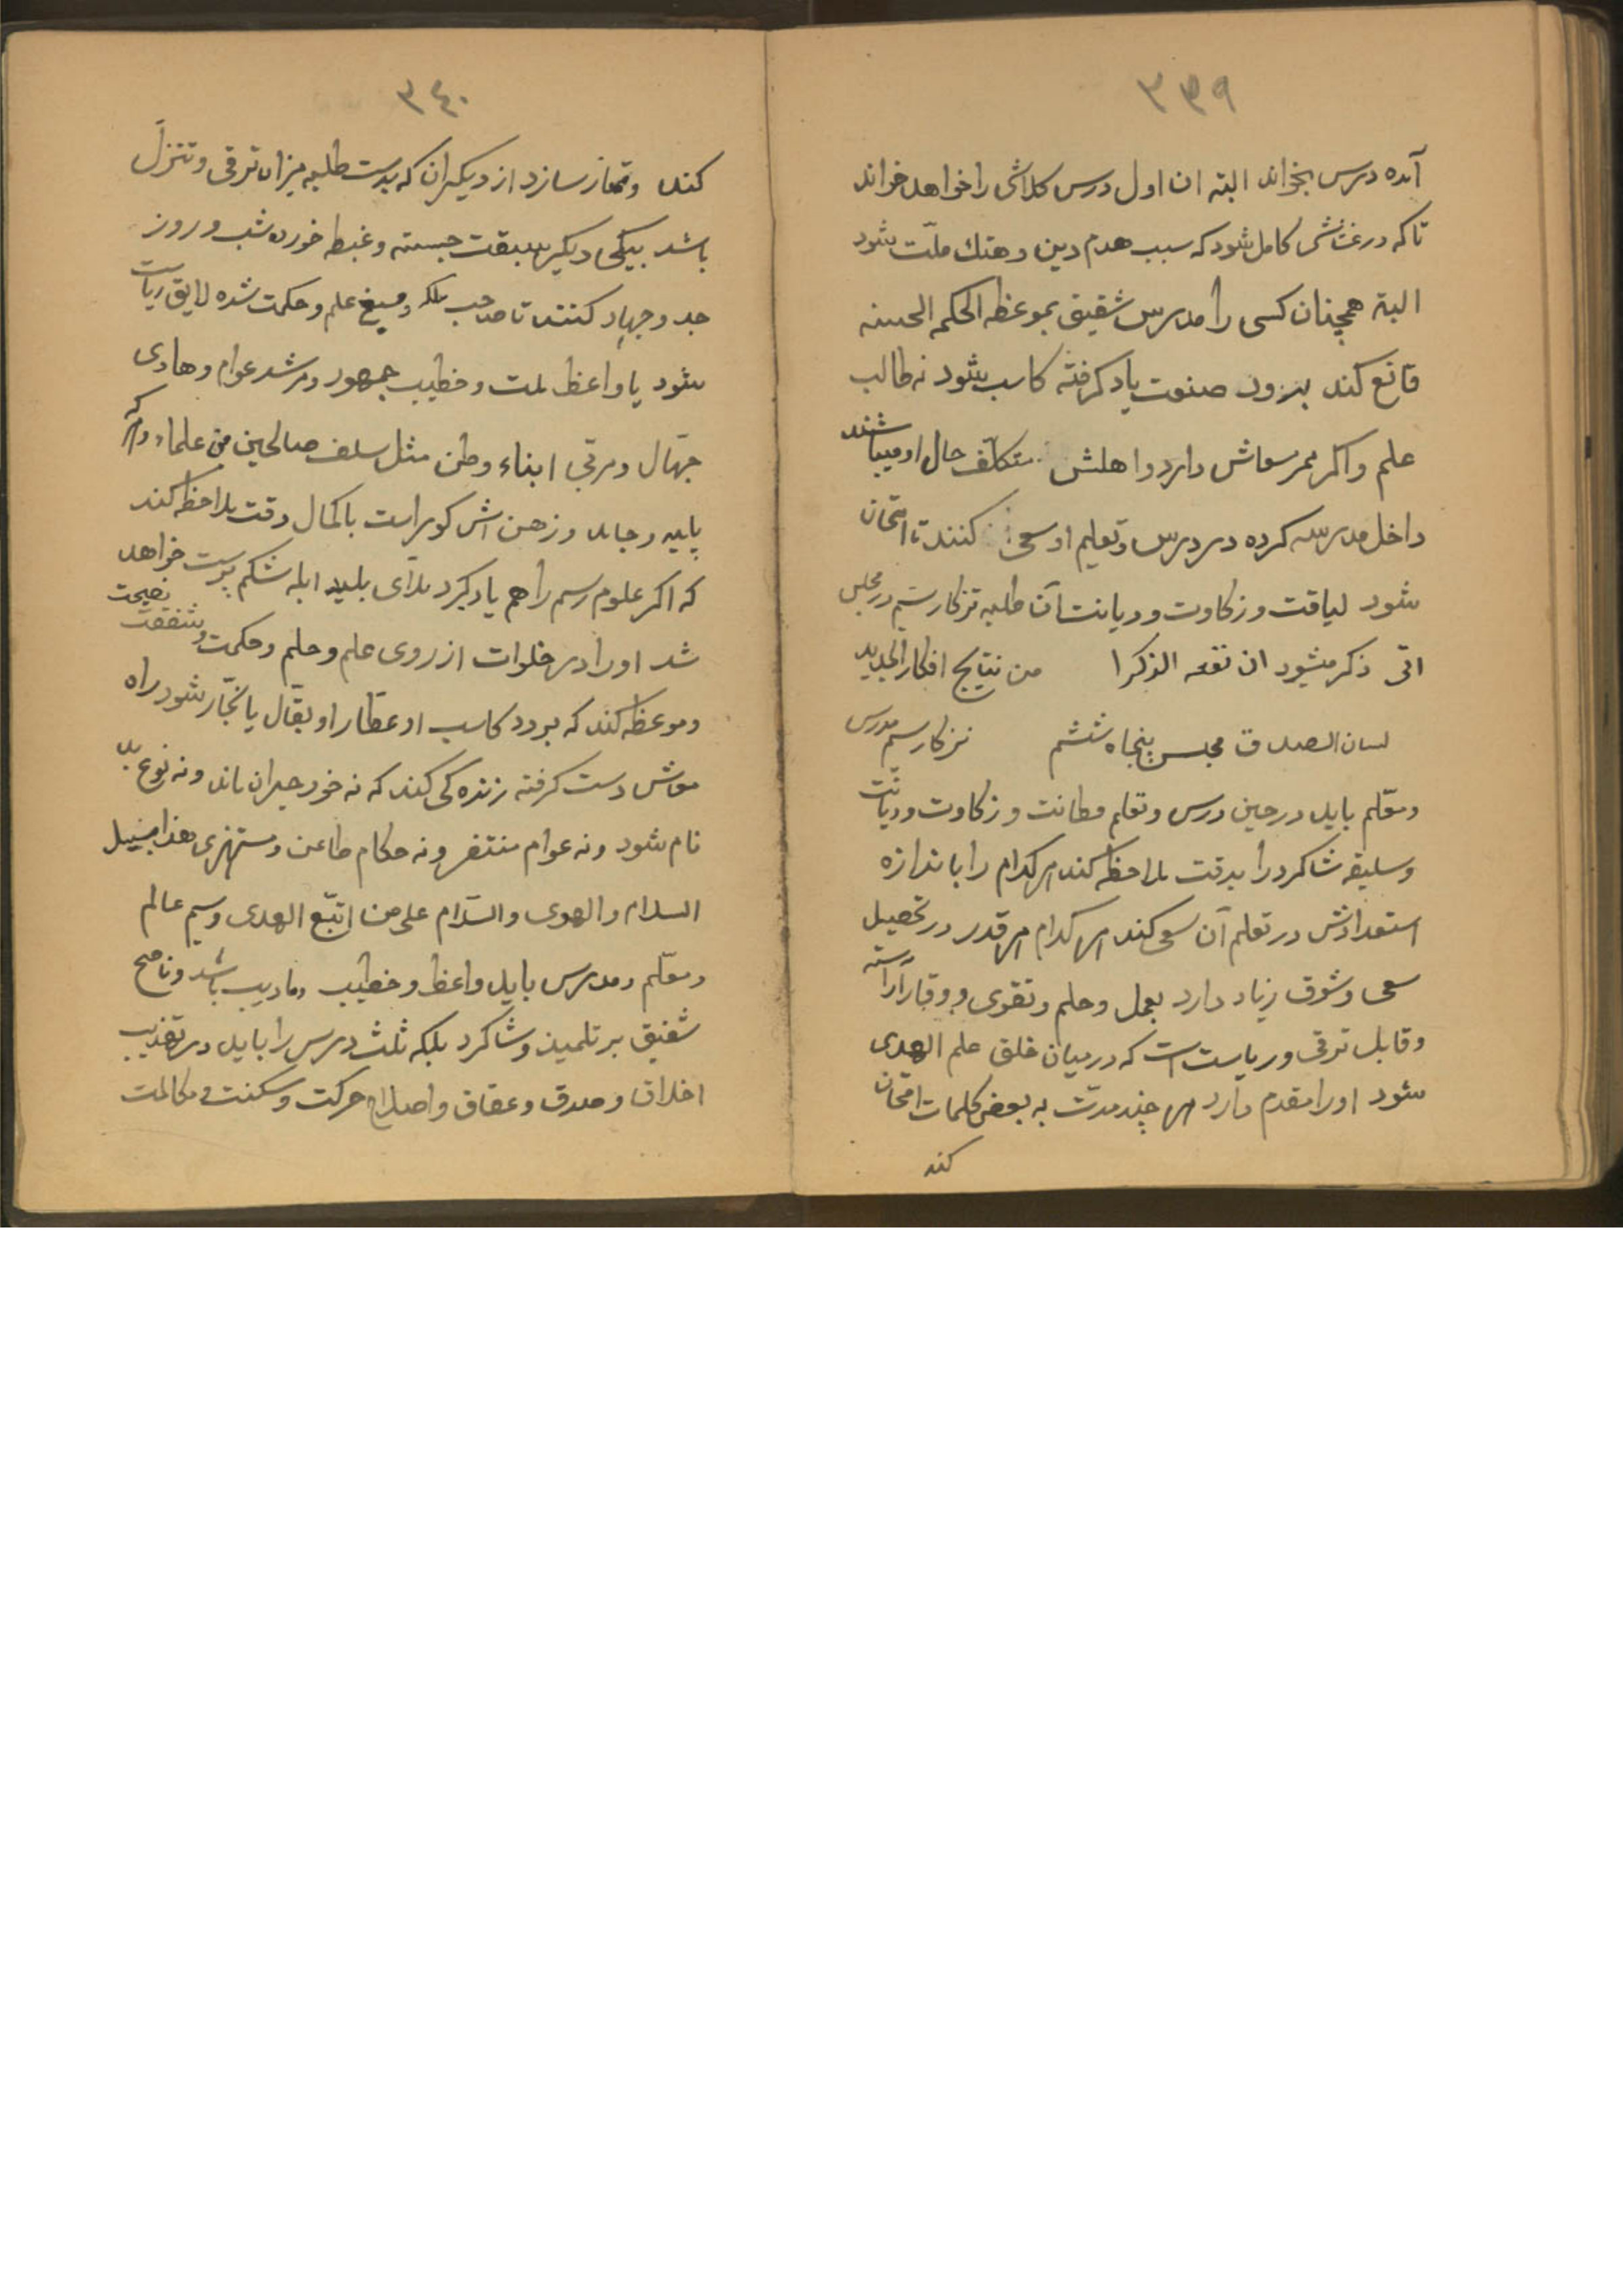 ٣٣٩
آمده درس بخواند البته ان اول درس کلاشی را خواهد خواند
تا که در غشاشی کامل شود که سبب هدم دین و هتك ملّت شود
البته همچنان کسی را مدرس شفیق بموعظه الحکم الحسنه
قانع کند برود صنعت یاد کرفته کاسب شود نه طالب
علم و اکر ممر معاش دارد و اهلش متکلف حال او میباشند
داخل مدرسه کرده در درس و تعلیم او سعی کنند تا امتحان
شود لیاقت و زکاوت و دیانت آن طلبه تزکار سیم در مجلس
اتی ذکر میشود ان نفعه الذکرا من نتایج افکار الجدید
لسان الصدق مجلس پنجاه ششم تزکار سیم مدرس
و معّلم باید در حین درس و تعلم و زکاوت و دیانت
و سلیقه شاکرد را بدقت ملاحظه کند هر کدام را باندازه
استعدادش در تعلم آن سعی کند هر کدام هر قدر در تحصیل
سعی و شوق زیاد دارد بعمل و حلم و تقوی و وقار آراسته
و قابل ترقی و ریاست است که در میان خلق علم الهدی
شود او را مقدم دارد هر چند مدت به بعض کلمات امتحان
کند
٣٤٠
کند و ممتاز سازد از دیکران که بدست طلبه میزان ترقی و تنزل
باشد بیکی دیکر سبقت جسته و غبطه خورده شب و روز
جد و جهاد کنند تا صاحب ملکه و علم و حکمت شده لایق ریاست
شود یا واعظ ملت و خطیب جمهور و مرشد عوام و هادی
جهّال و مربی ابناء وطن مثل سلف صالحین من علماء و هر که
پلید و جامد و زهن اش کور است باکمال دقت ملاحظه کند
که اکر علوم رسم را هم یاد کیرد ملّای بلید ابله شکم پرست خواهد
شد او را در خلوات از روی علم و حلم و حکمت و شفقت نصیحت
و موعظه کند که برود کاسب او عطار او بقّال یا نجّار شود راه
معاش دست کرفته زنده کی کند که نه خود حیران ماند و نه نوع بد
نام شود و نه عوام متنفر و نه حکام طاعن و مستهزی
السلام و الهدی و السّلام علی من اتبّع الهدی و سیم عالم
و معّلم و مدرس باید واعظ و خطیب و ادیب باشد و ناصح
شفیق بر تلمیذ و شاکرد بلکه ثلث درس را باید در تهذیب
اخلاق و صدق و عفاف و اصلاح حرکت و سکنت و مکالمت